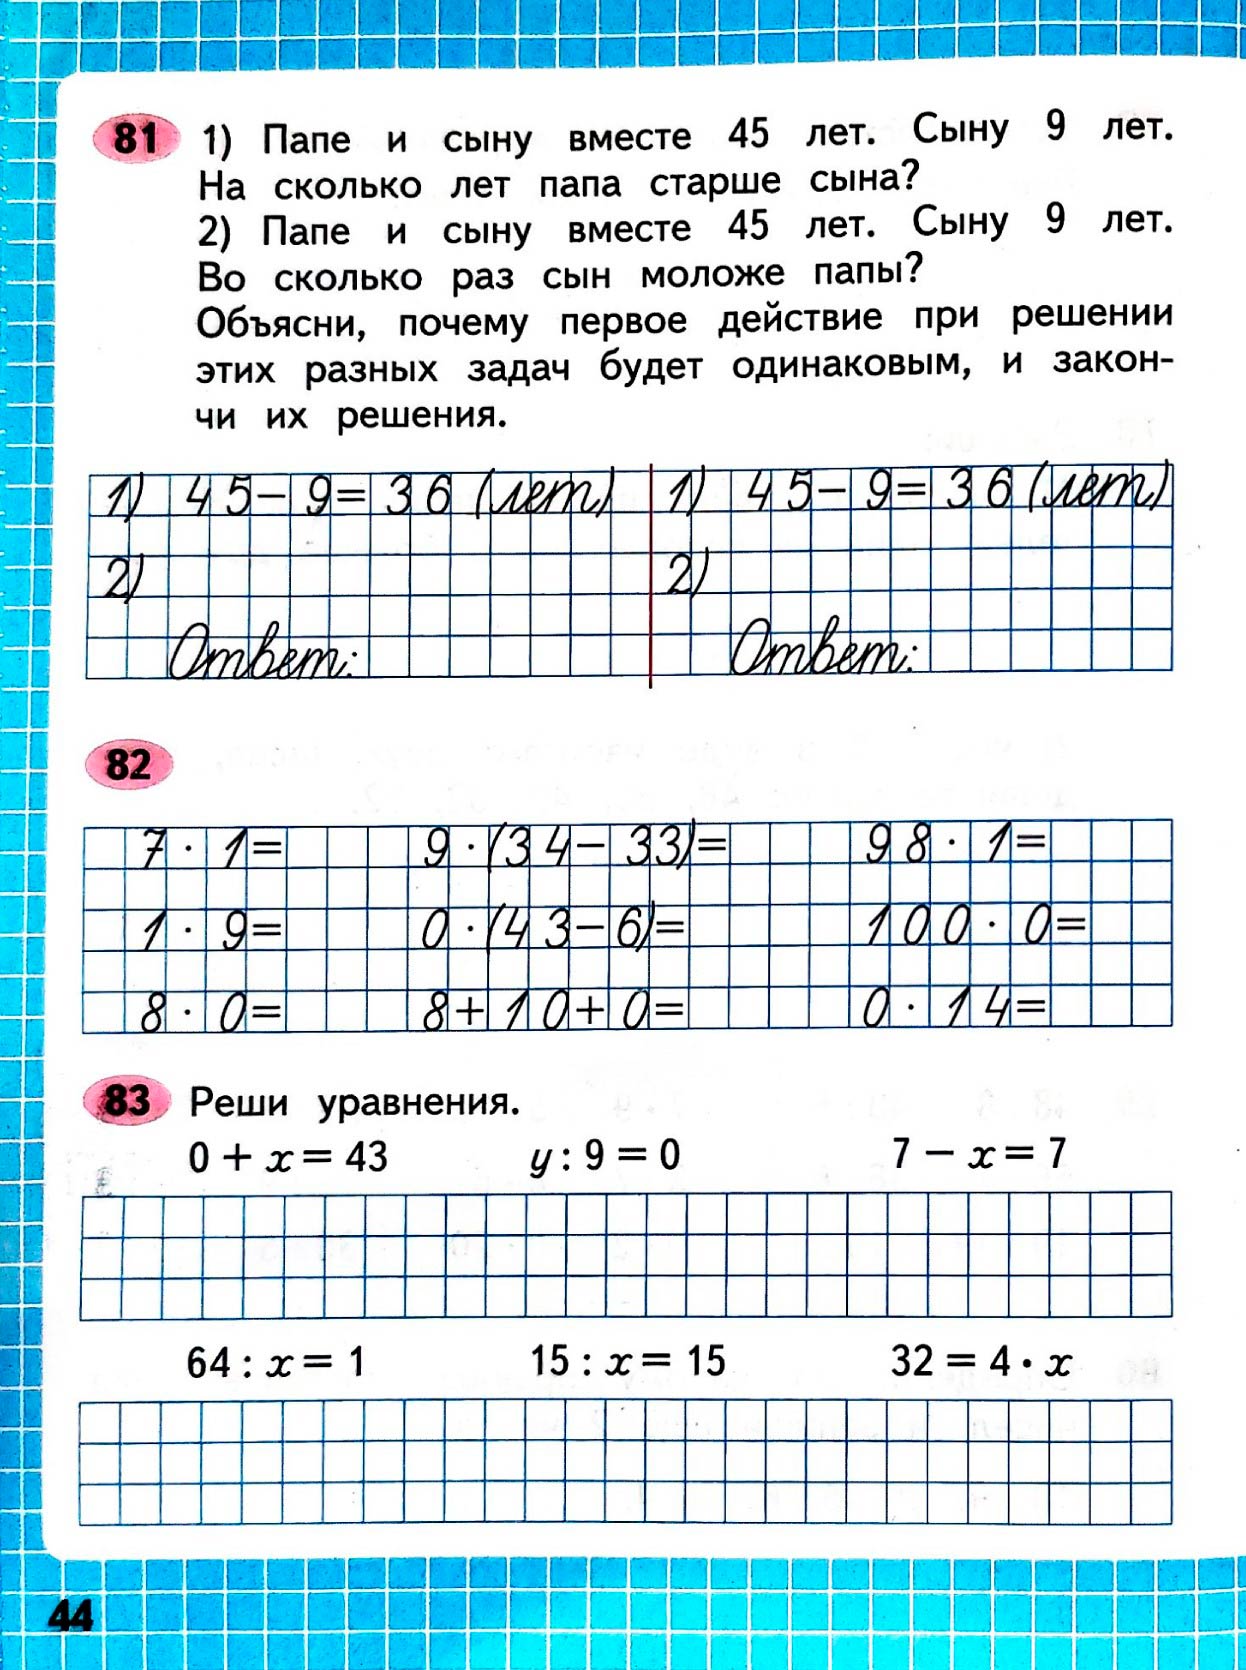 81 1) Папе и сыну вместе 45 лет. Сыну 9 лет.
На сколько лет папа старше сына?
2) Папе и сыну вместе 45 лет. Сыну 9 лет.
Во сколько раз сын моложе папы?
Объясни, почему первое действие при решении
этих разных задач будет одинаковым, и закон-
чи их решения.
1) 45-9=36 (лет) 1) 45-9=36 (лет)
2) 2)
Ответ: Ответ:
82
7·1= 9·(34-33)= 98·1=
1·9= 0·(43-6)= 100·0=
8·0= 8+10+0= 0·14=
83 Реши уравнения.
0 + x = 43 y : 9 = 0 7 − x = 7
64 : x = 1 15 : x = 15 32 = 4 · x
44